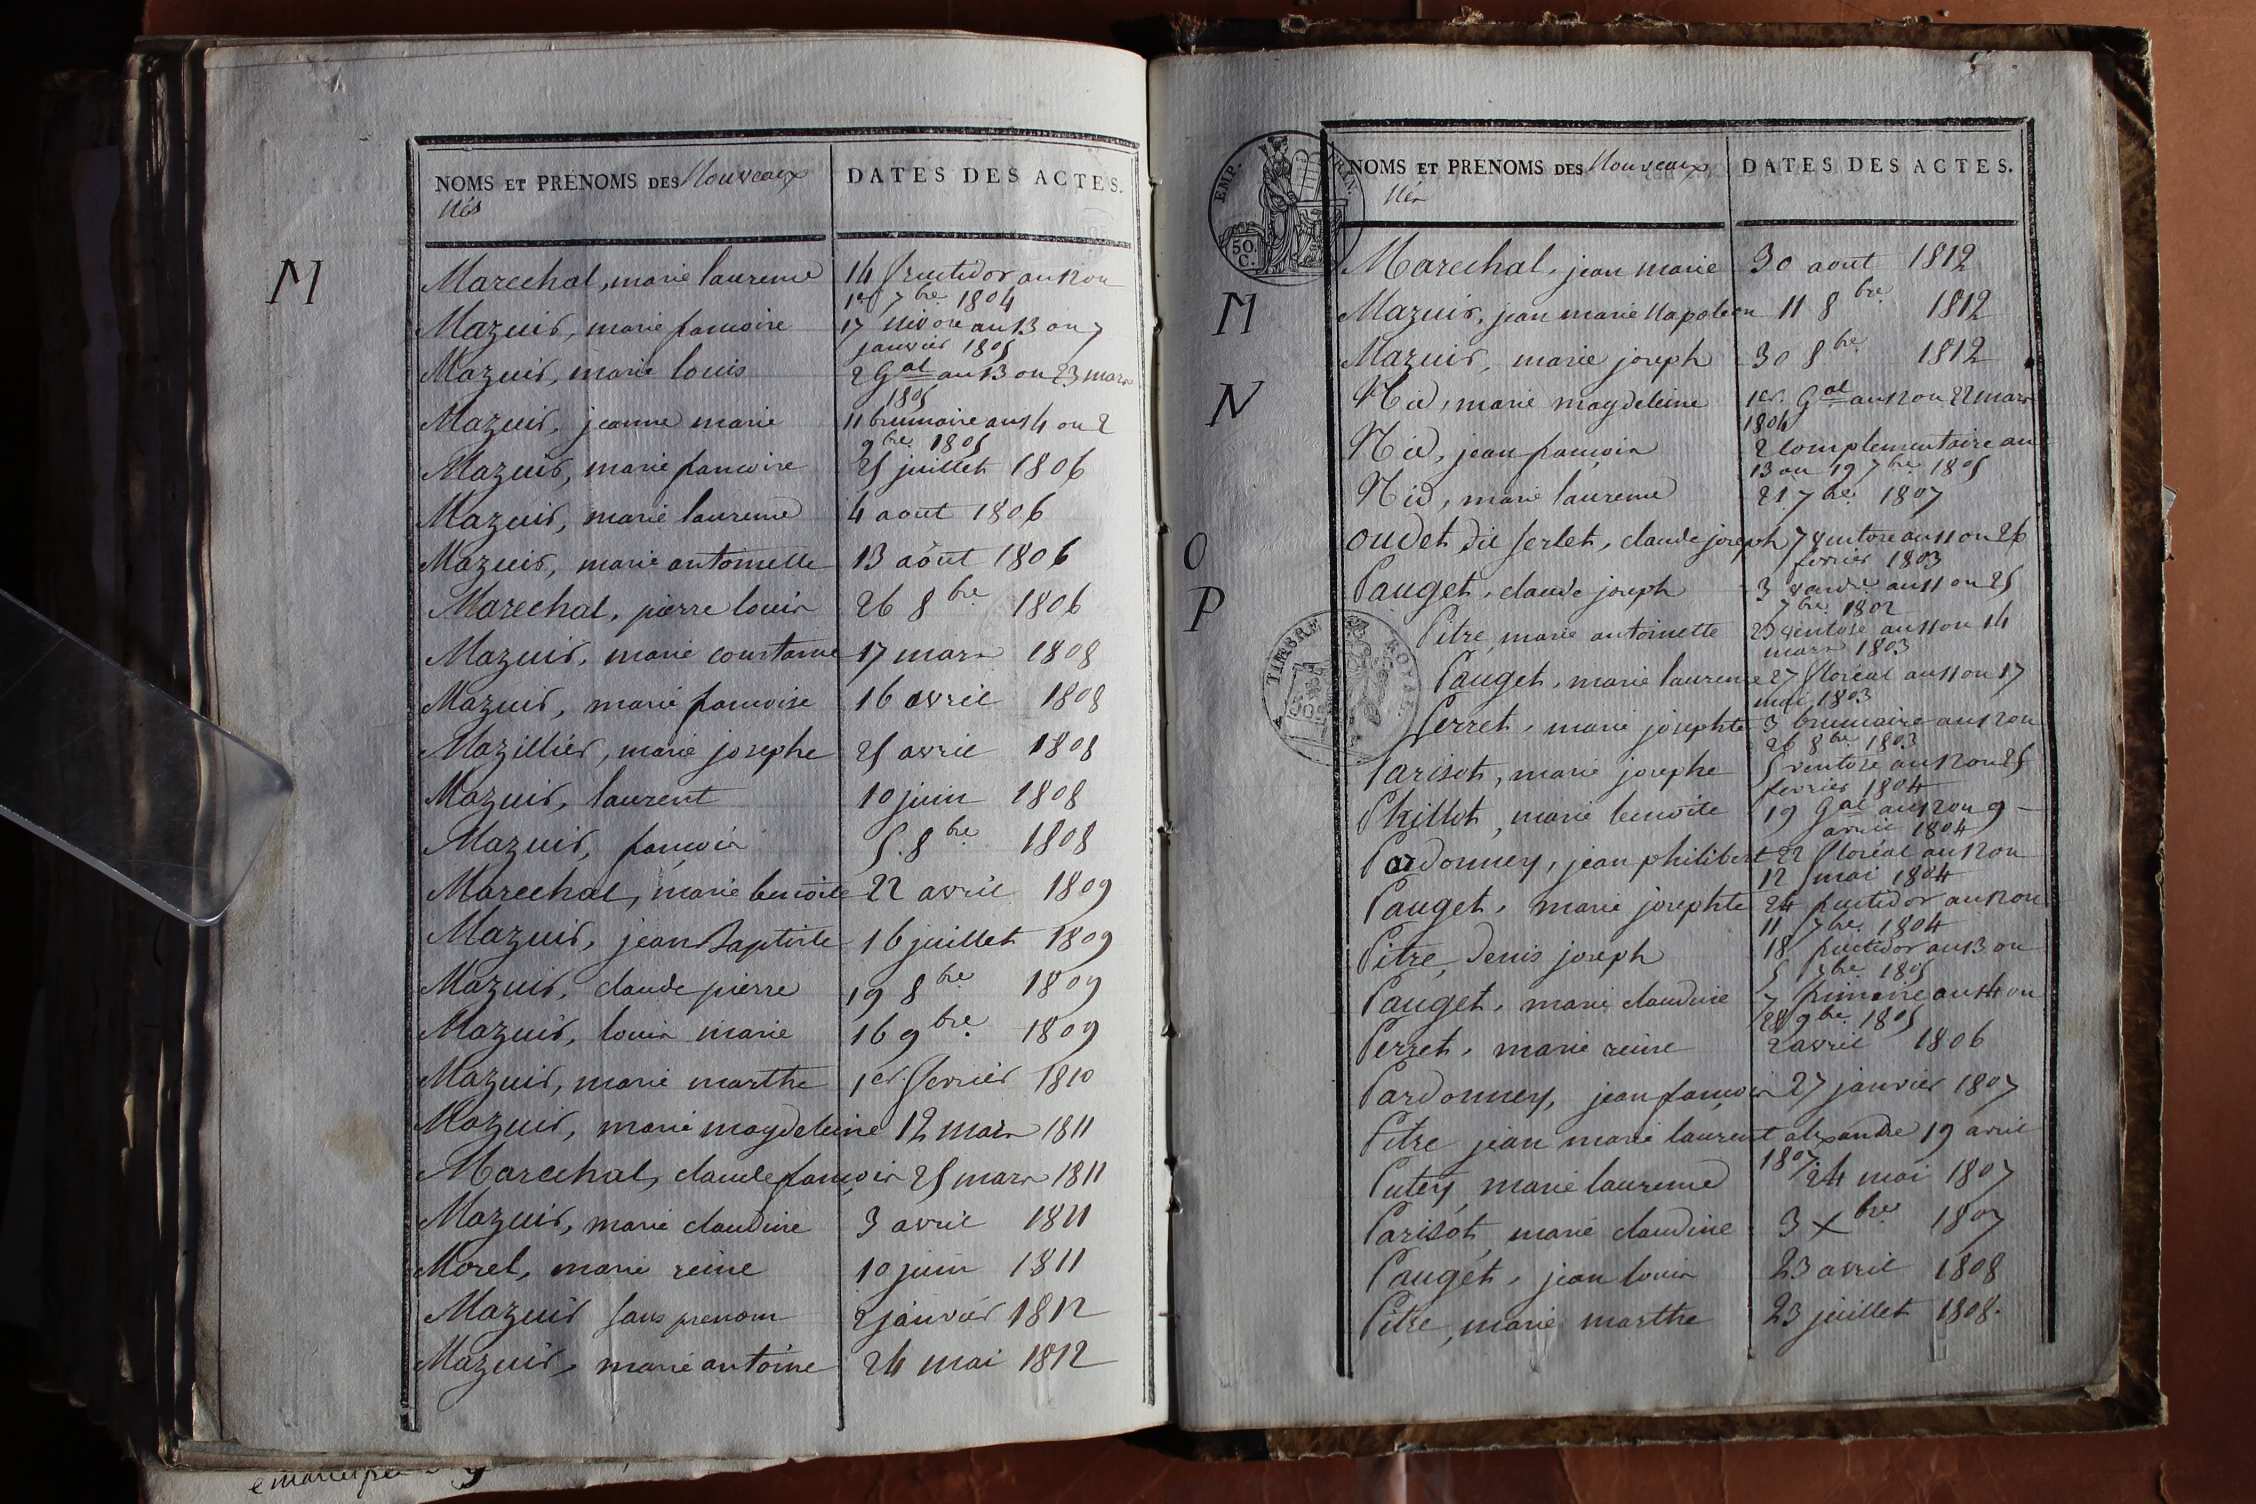 NOMS ET PRÉNOMS DES Nouveaux
Nés
DATES DES ACTES.
M
Marechal, marie laurence 14 fructidor an 12 ou
1er 7bre 1804
Mazuir, marie francoise 17 nivose an 13 ou 7
janvier 1805
Mazuir, marie louis 2 Gal an 13 ou 23 mars
1805
Mazuir, jeanne marie 11 brumaire an 14 ou 2
9bre 1805
Mazuir, marie francoise 25 juillet 1806
Mazuir, marie laurence 4 aout 1806
Mazuir, marie antoinette 13 aout 1806
Marechal, pierre louis 26 8bre 1806
Mazuir, marie constance 17 mars 1808
Mazuir, marie francoise 16 avril 1808
Mazillier, marie josephe 25 avril 1808
Mazuir, laurent 10 juin 1808
Mazuir, françois 5. 8bre 1808
Marechal, marie benoite 22 avril 1809
Mazuir, jean Baptiste 16 juillet 1809
Mazuir, claude pierre 19 8bre 1809
Mazuir, louis marie 16 9bre 1809
Mazuir, marie marthe 1er fevrier 1810
Mazuir, marie magdeleine 12 mars 1811
Marechal, claude françois 25 mars 1811
Mazuir, marie claudine 3 avril 1811
Morel, marie reine 10 juin 1811
Mazuir sans prenom 2 janvier 1812
Mazuir, marie antoine 24 mai 1812
EMP. 50. C.
NOMS ET PRÉNOMS DES Nouveaux
Nés
DATES DES ACTES.
Marechal, jean marie 30 aout 1812
M
Mazuir, jean marie Napoleon 11 8bre 1812
Mazuir, marie joseph 30 8bre 1812
N
Nid, marie magdeleine 1er. Gal an 12 ou 22 mars
1804
Nid, jean françois 2 complementaire an
13 ou 19 7bre 1805
Nid, marie laurence 21. 7bre 1807
O
oudet dit ferlet, claude joseph 7 ventose an 11 ou 26
fevrier 1803
P
Pauget, claude joseph 3 vendre an 11 ou 25
7bre 1802
TIMBRE ROYAL
Pitre, marie antoinette 23 ventose an 11 ou 14
mars 1803
Pauget, marie laurence 27 floréal an 11 ou 17
mai 1803
Perret, marie josephte 3 brumaire an 12 ou
26 8bre 1803
Parisot, marie josephe 5 ventose an 12 ou 25
fevrier 1804
Phillot, marie benoite 19 Gal an 12 ou 9
avril 1804
Pardonney, jean philibert 22 floréal an 12 ou
12 mai 1804
Pauget, marie josephte 24 fructidor an 12 ou
11 7bre 1804
Pitre, denis joseph 18 fructidor an 13 ou
5 7bre 1805
Pauget, marie claudine 7 frimaire an 14 ou
28 9bre 1805
Perret, marie reine 2 avril 1806
Pardonney, jean françois 27 janvier 1807
Pitre jean marie laurent alexandre 19 avril
1807
Putey marie laurence 24 mai 1807
Parisot, marie claudine 3 Xbre 1807
Pauget, jean louis 23 avril 1808
Pitre, marie marthe 23 juillet 1808.